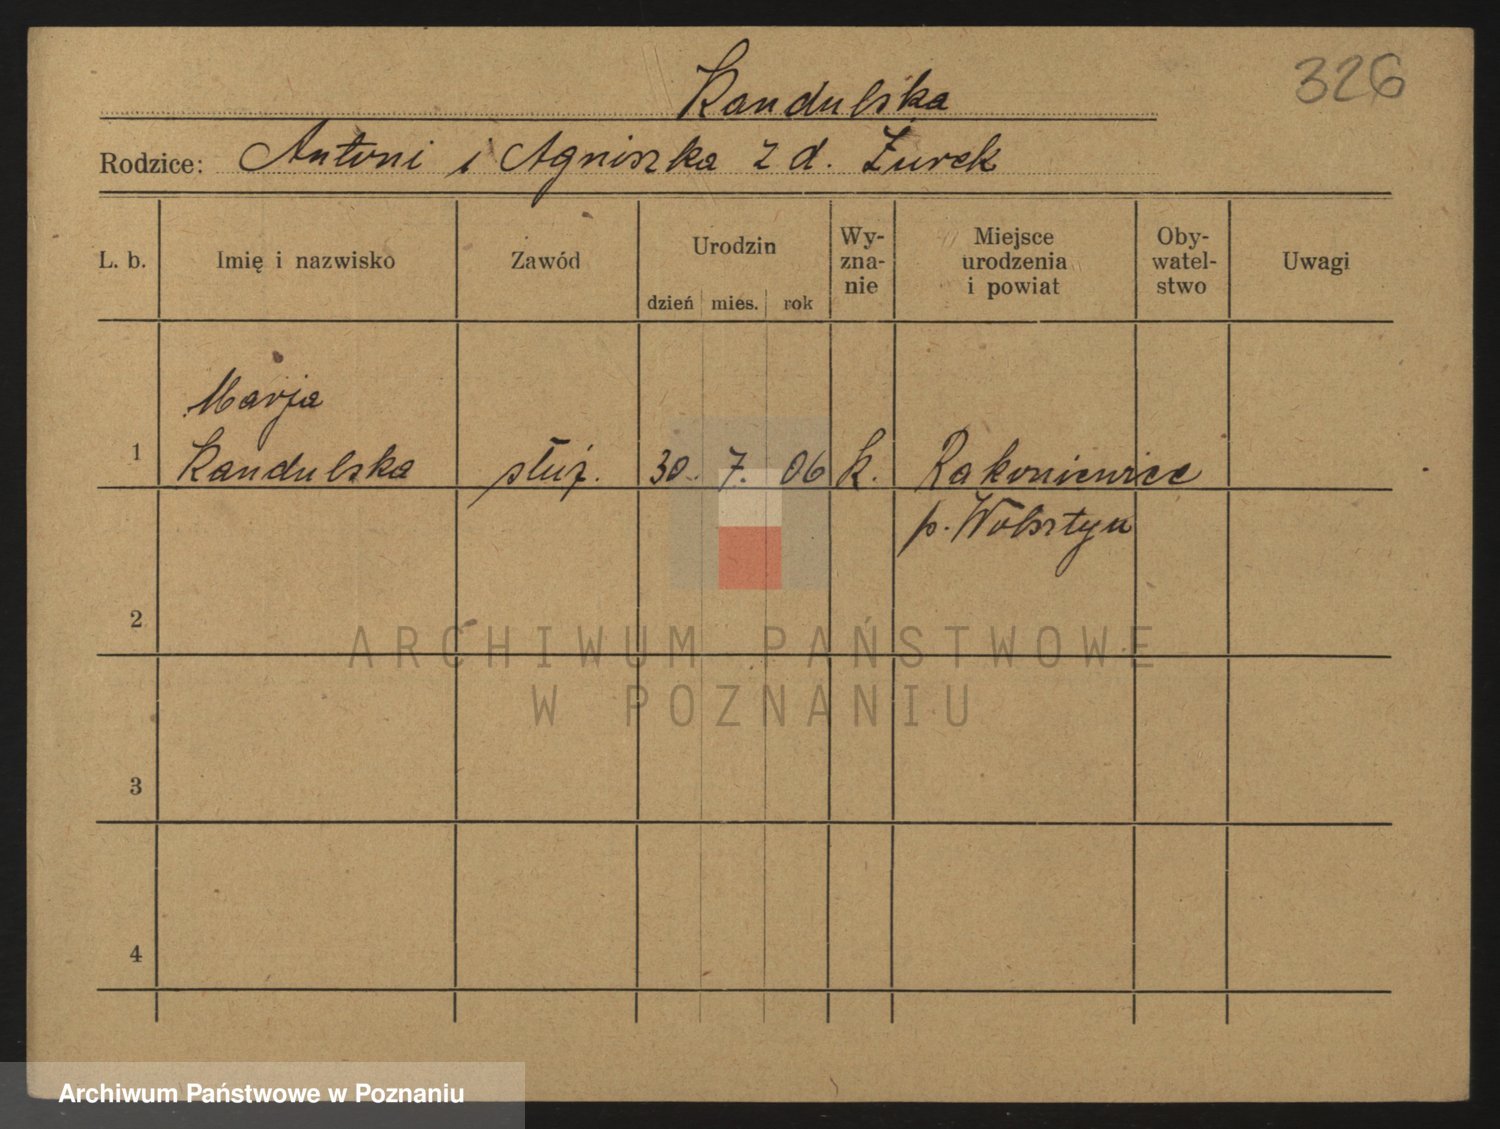 326
Kandulska
Rodzice: Antoni i Agniszka z d. Żurek
L. b. Imię i nazwisko Zawód Urodzin Wy- Miejsce Oby- Uwagi
zna- urodzenia watel-
nie i powiat stwo
dzień mies. rok
Marja
1 Kandulska służ. 30. 7. 06 k. Rakoniewice
p. Wolsztyn
2
3
4
ARCHIWUM PAŃSTWOWE
W POZNANIU
Archiwum Państwowe w Poznaniu